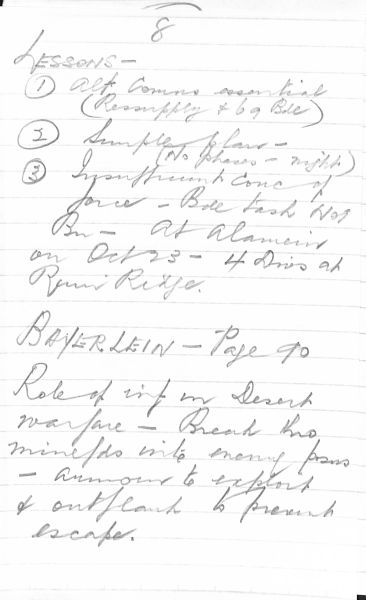 8
LESSONS -
① Alt Comns essential
(Resupply & 69 Bde)
② Simple plan -
(No phases - night)
③ Insufficient Conc of
force - Bde task Not
Bn - At Alamein
on Oct 23 - 4 Divs at
Ridge.
BAYERLEIN - Page 90
Role of inf in Desert
warfare - Break thro
minefds into enemy posns
- armour to exploit
& outflank to prevent
escape.